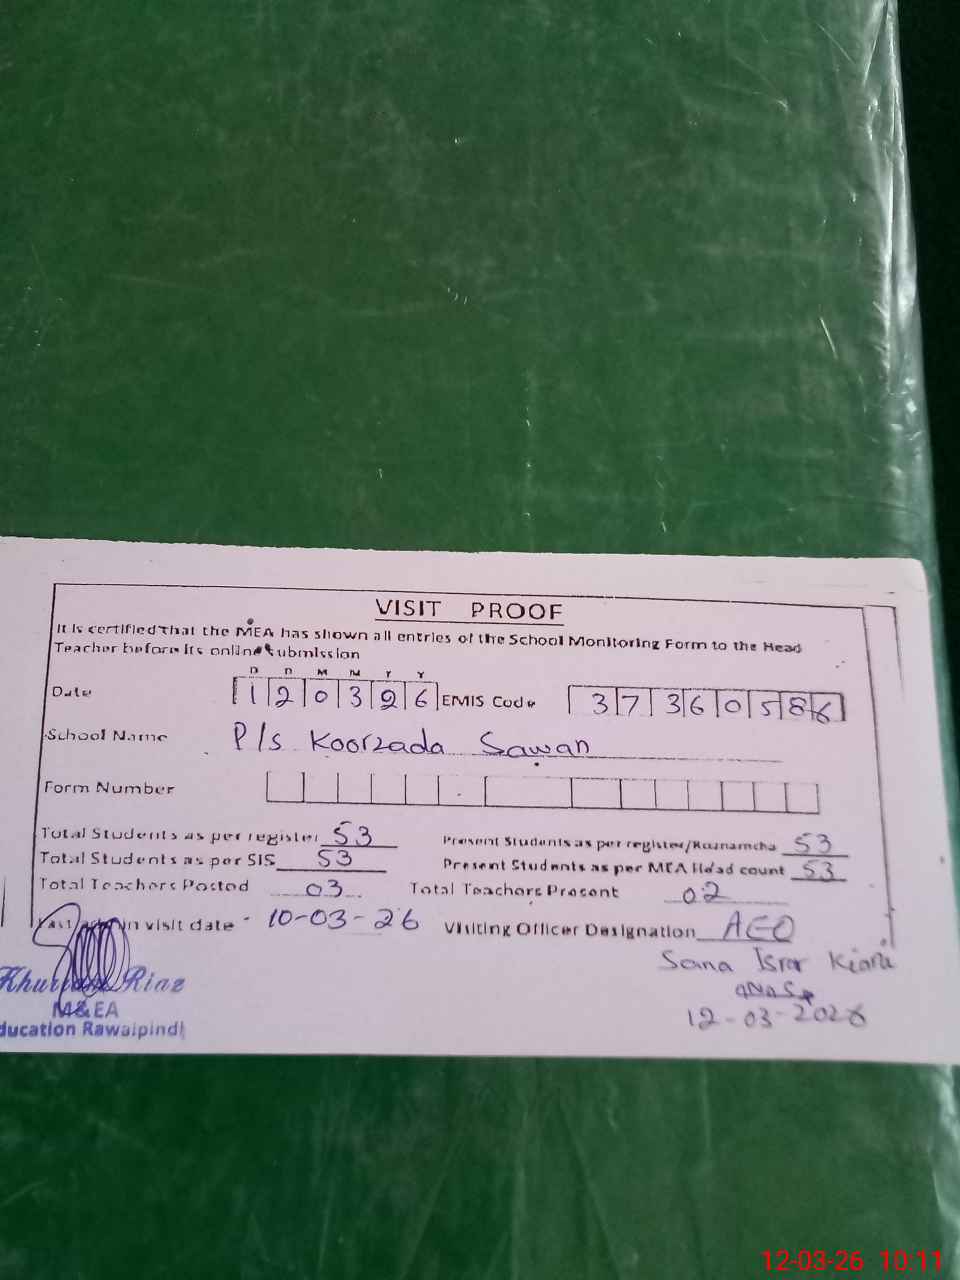 VISIT PROOF
It is certified that the MEA has shown all entries of the School Monitoring Form to the Head
Teacher before its online submission
D D M M Y Y
Date 120326 EMIS Code 37360586
School Name P/s Koorzada Sawan
Form Number
Total Students as per register 53 Present Students as per register/Roznamcha 53
Total Students as per SIS 53 Present Students as per MEA Head count 53
Total Teachers Posted 03 Total Teachers Present 02
Last admin visit date - 10-03-26 Visiting Officer Designation AEO
Sana Israr Kiani
Khurram Riaz
M&EA
12-03-2026
ducation Rawalpindi
12-03-26 10:11